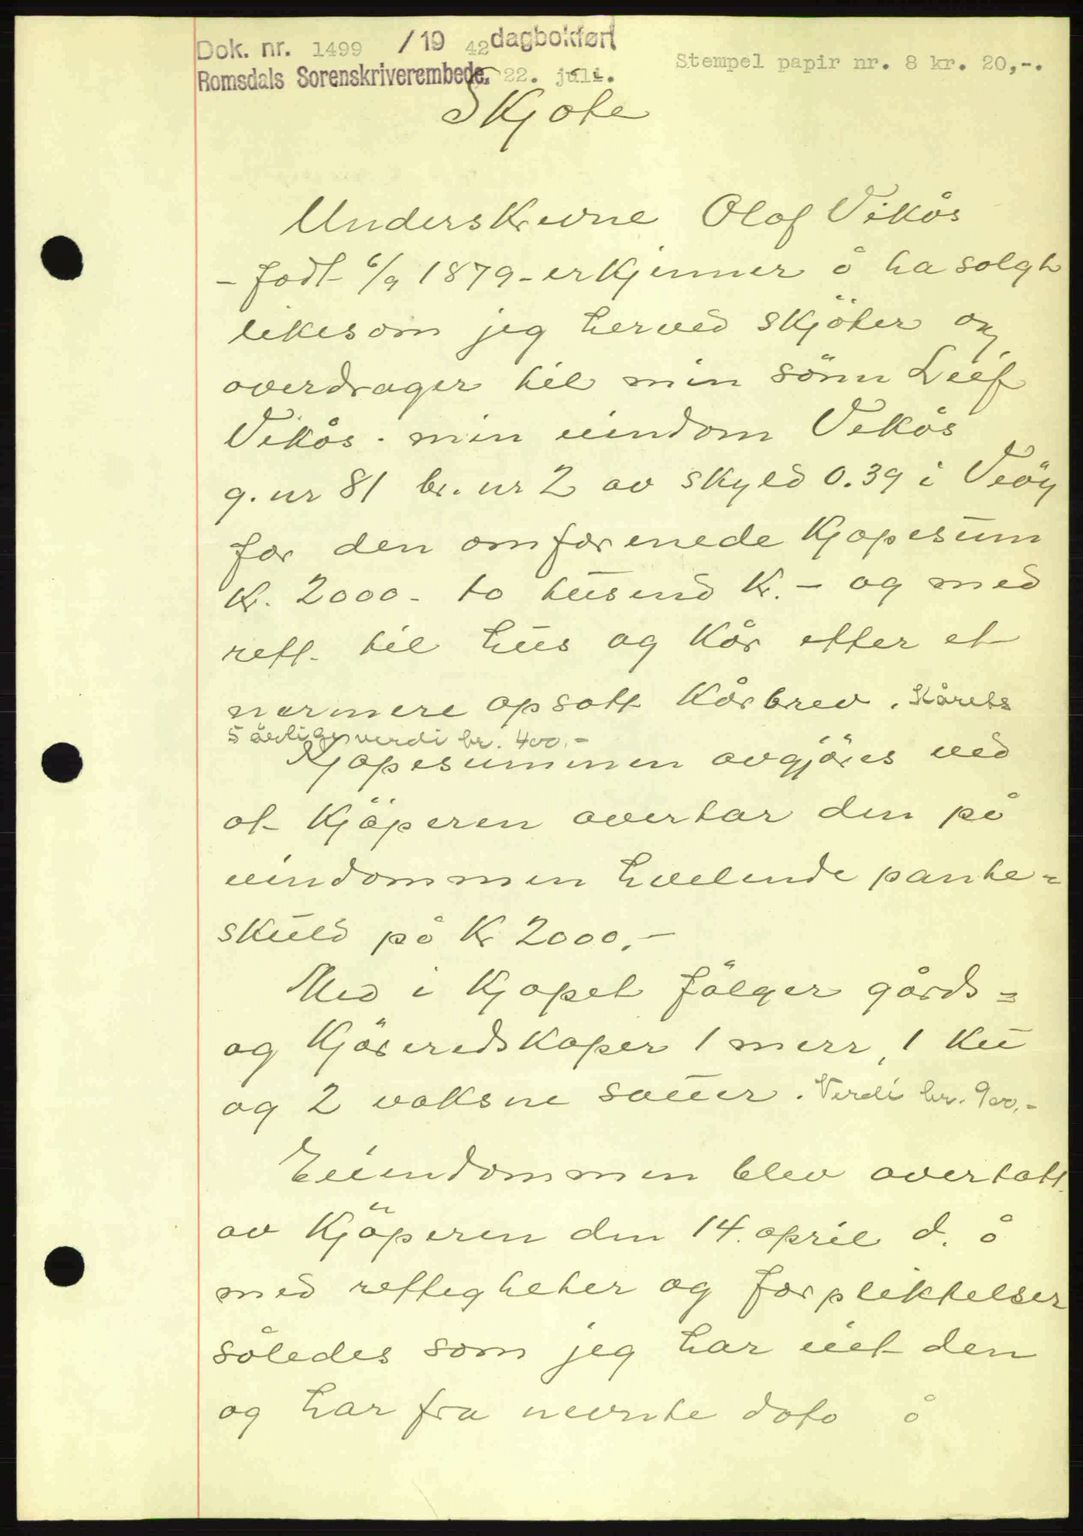 Dok. nr. 1499 /19 42 dagbokført
Stempel papir nr. 8 kr. 20,-.
Romsdals Sorenskriverembede. 22. juli.
Skjøte
Underskrevne Olaf Vikås
- født 6/9 1879 - erkjenner å ha solgt
likesom jeg herved skjöter og
overdrager til min sönn Leif
Vikås. min eiendom Vikås
g. nr 81 br. nr 2 av skyld 0.39 i Veöy
for den omforenede Kjöpesum
Kr. 2000 - to tusend Kr. - og med
rett til hus og Kår etter et
nærmere opsatt Kårbrev. Kårets
5 årlige verdi kr. 400.-
Kjöpesummen avgjöres ved
at Kjöperen overtar den på
eiendommen hvilende pante=
skuld på Kr 2000.-
Med i Kjöpet fölger gårds=
og Kjöreredskaper 1 merr, 1 Ku
og 2 voksne sauer. Verdi kr. 900.-
Eiendommen blev overtatt
av Kjöperen den 14. april d. å
med rettigheter og forpliktelser
således som jeg har eiet den
og har fra nevnte dato å